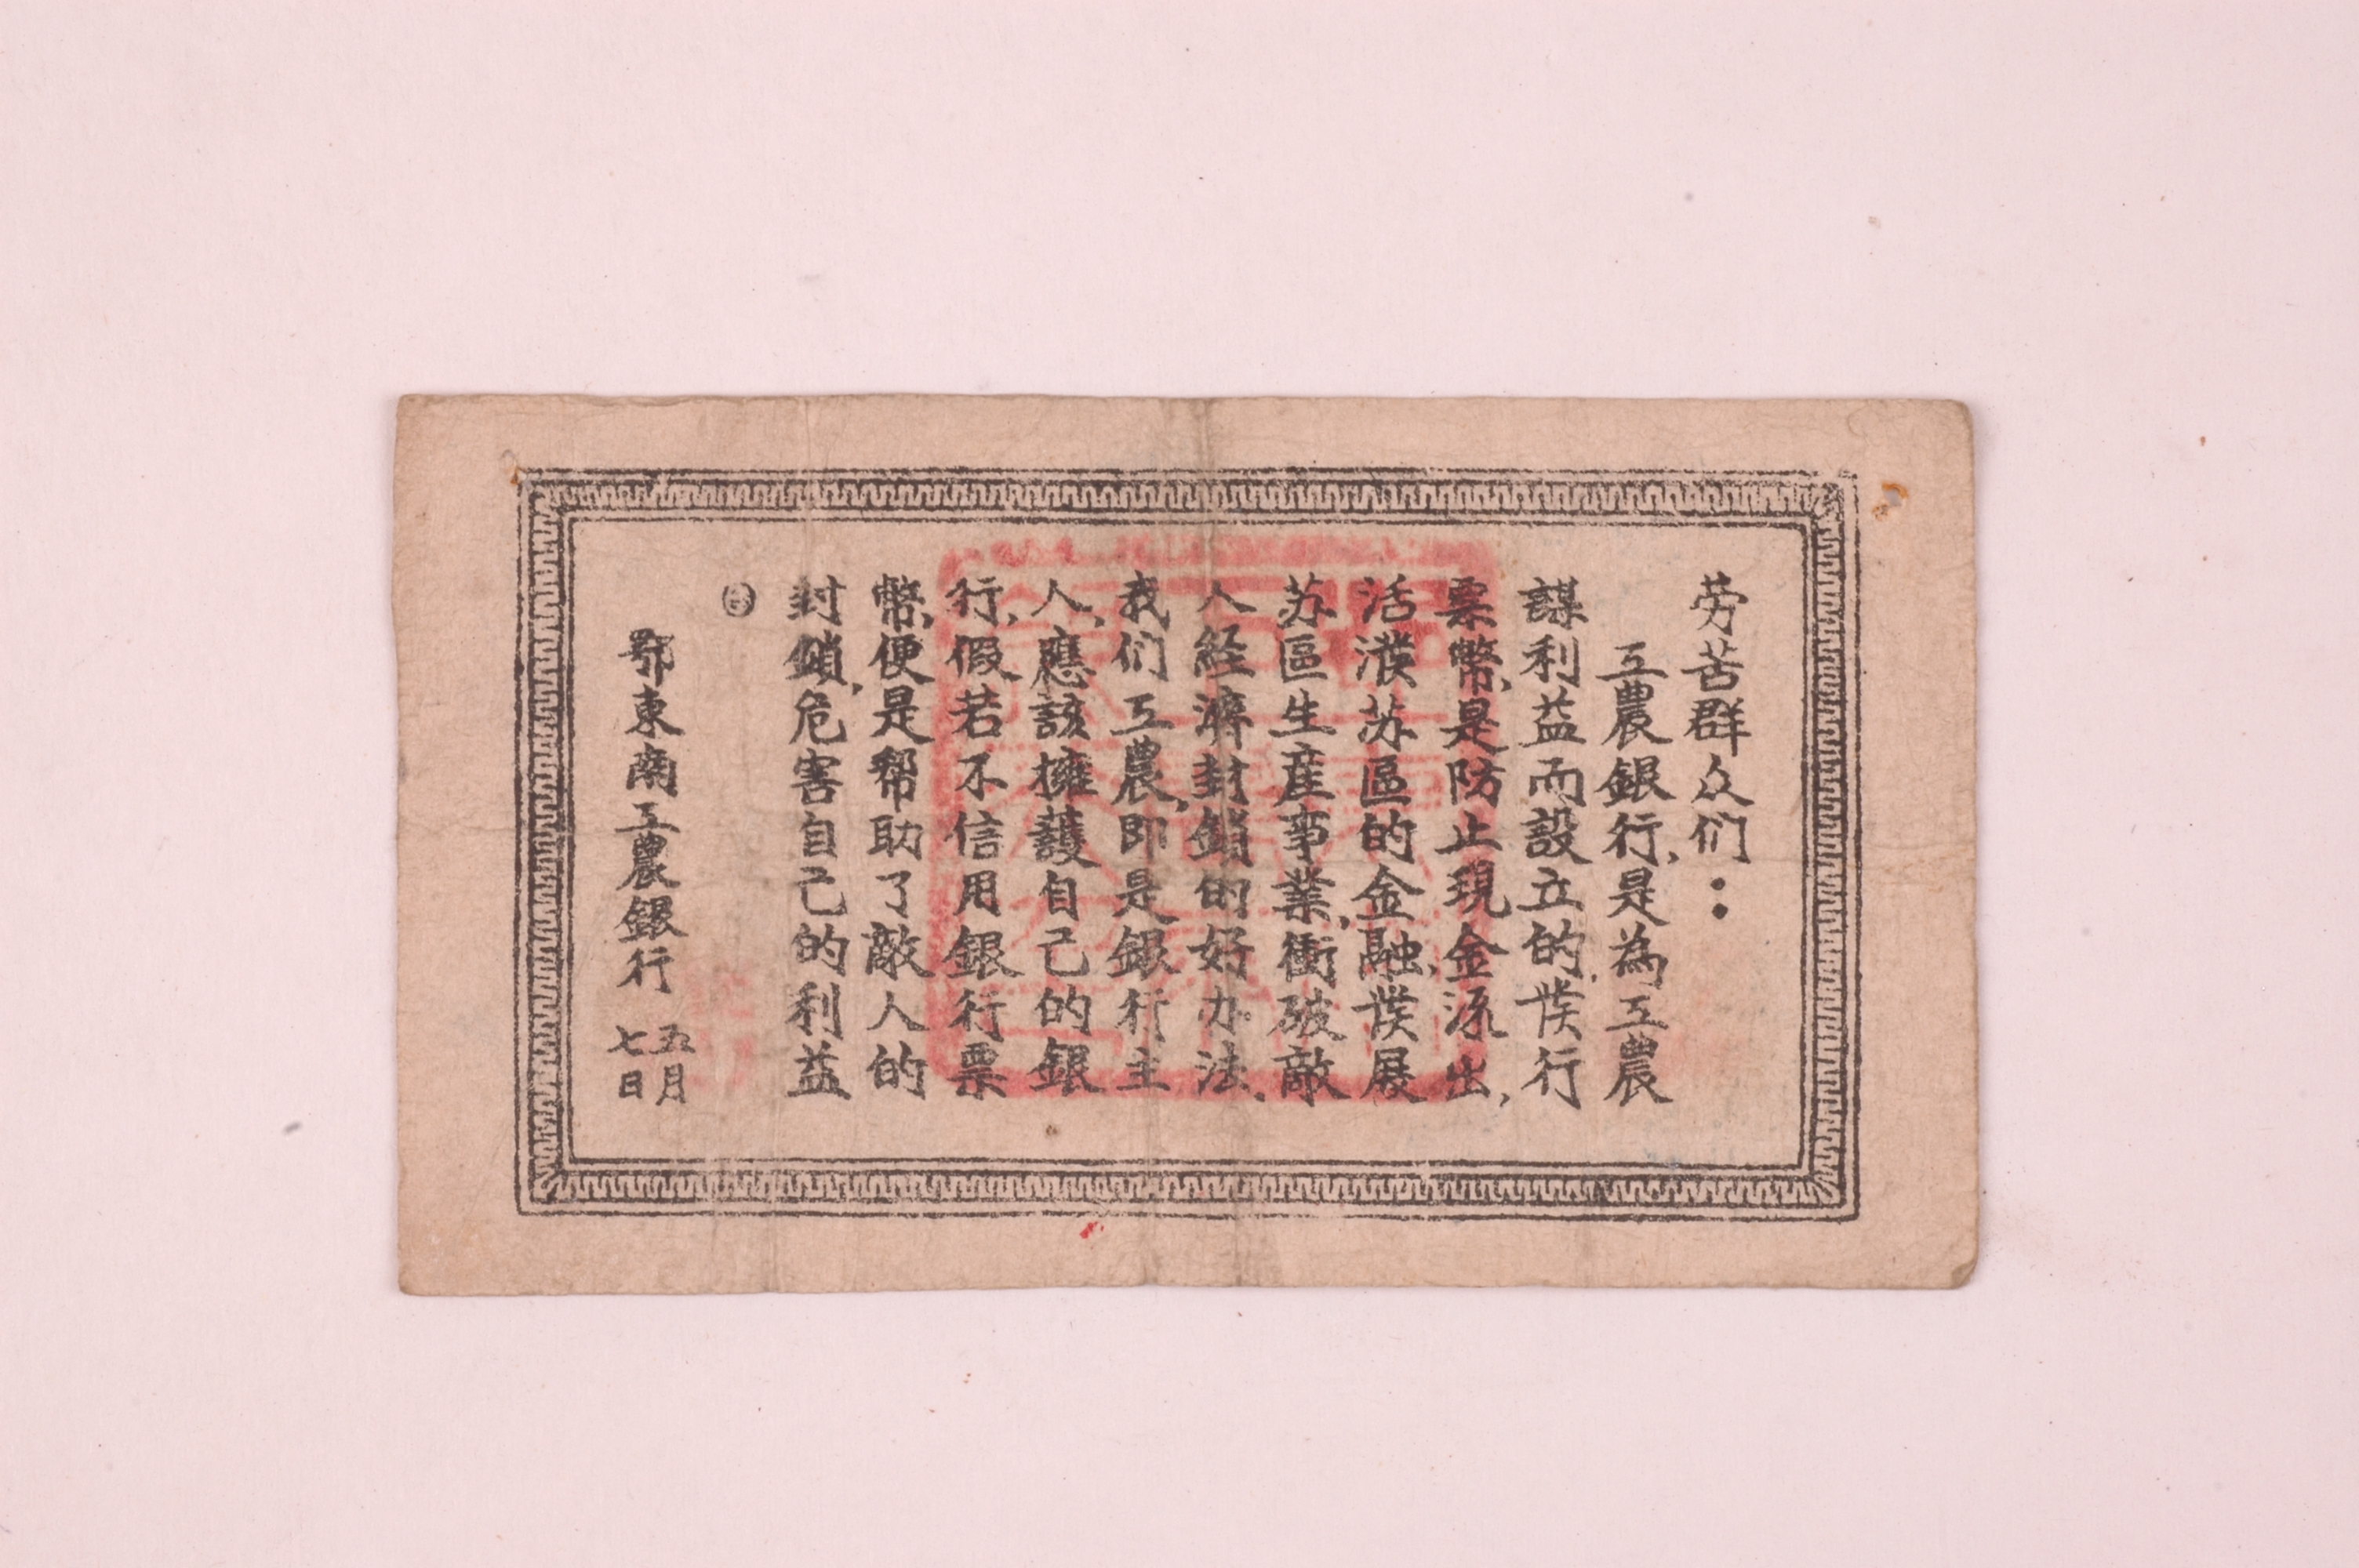 劳苦群众们：
工農銀行，是為工農
謀利益而設立的，發行
票幣，是防止現金流出，
活潑苏區的金融，發展
苏區生產事業，衝破敵
人經濟封鎖的好办法，
我们工農，即是銀行主
人，應該擁護自己的銀
行，假若不信用銀行票
幣，便是帮助了敵人的
封鎖，危害自己的利益
鄂東南工農銀行 五月七日